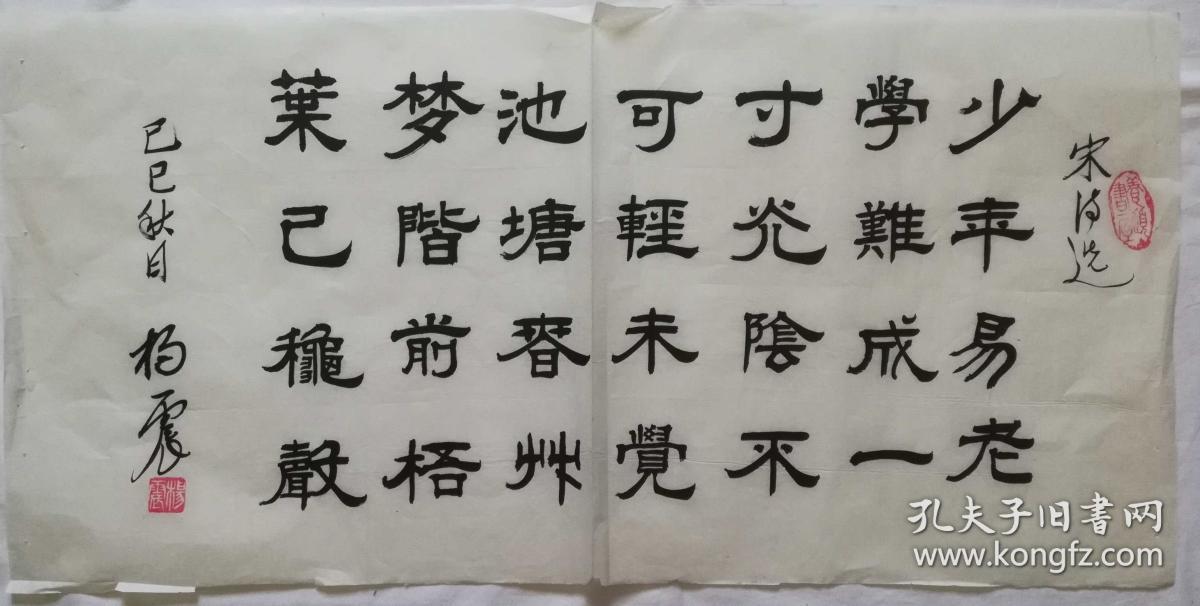 宋诗选
少年易老
學難成一
寸光陰不
可輕未覺
池塘春艸
梦階前梧
葉已龝聲
己巳秋月
杨震
楊震
孔夫子旧書网
www.kongfz.com